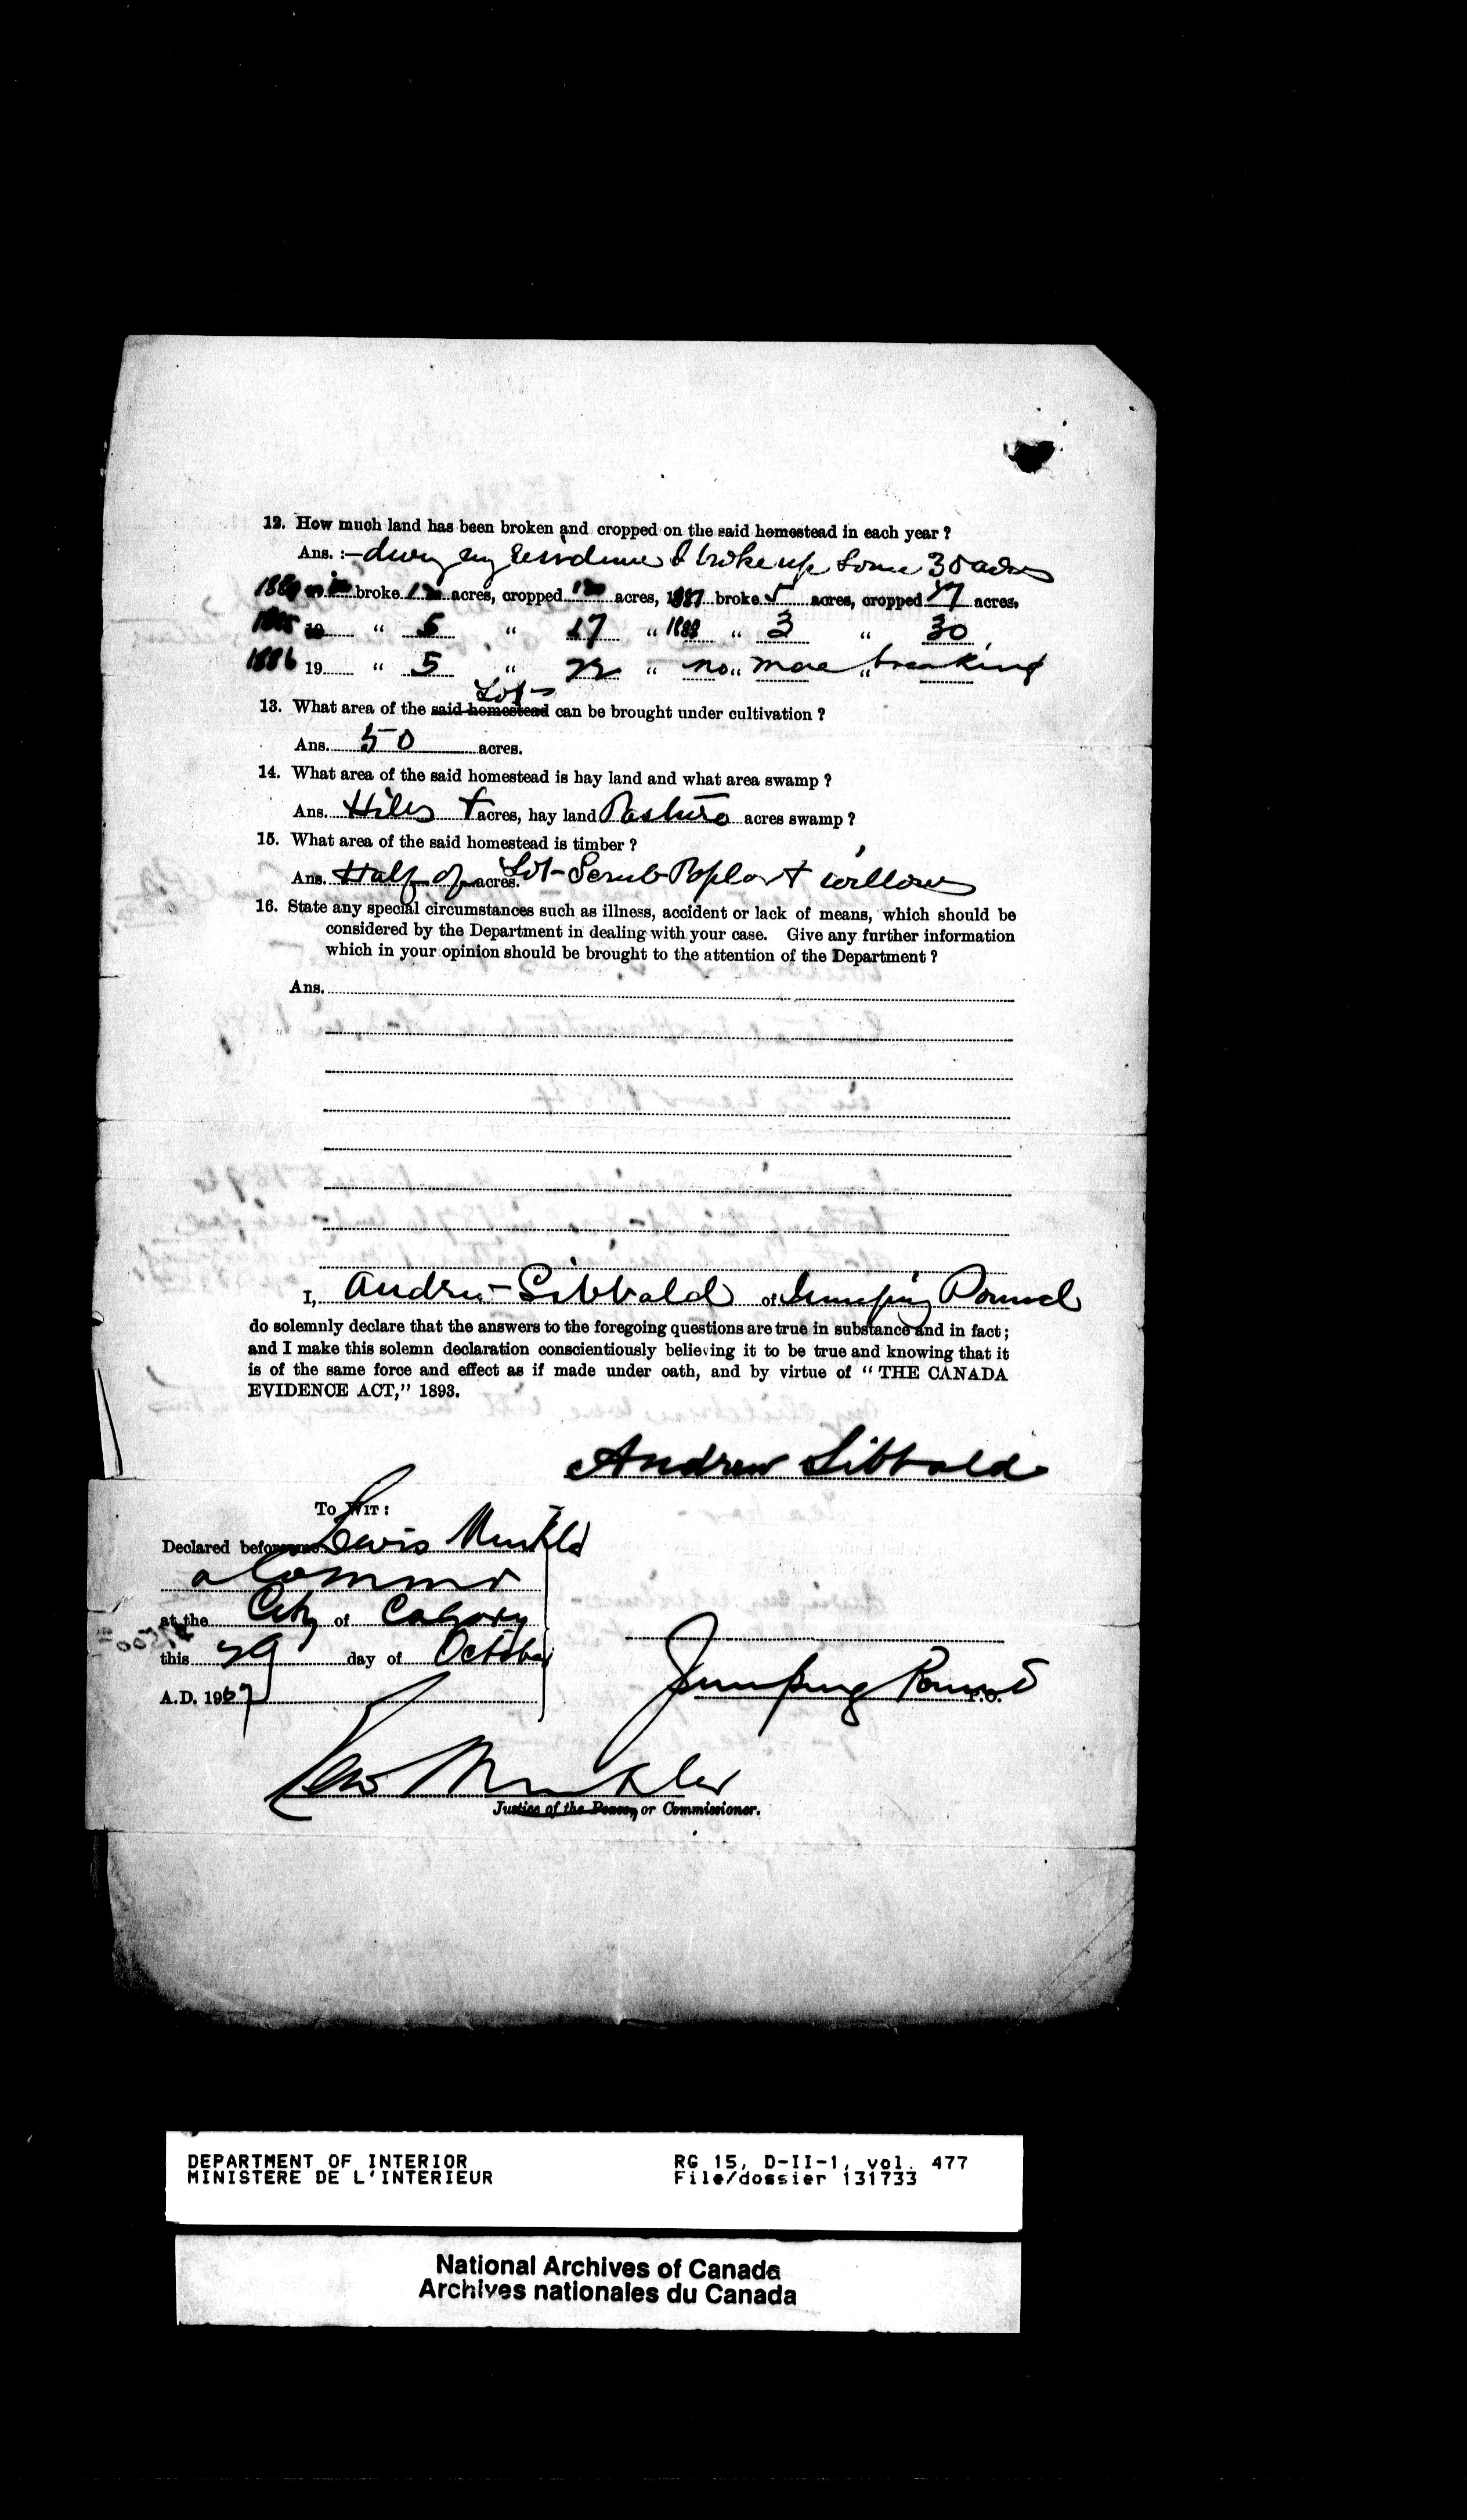 12. How much land has been broken and cropped on the said homestead in each year ?
Ans. :— my residence I broke up some 30 acres
broke 12 acres, cropped 12 acres, 1887 broke 5 acres, cropped 27 acres.
1885 19 " 5 " 17 " 1888 " 3 " 30
1886 19 " 5 " 22 " no " more " breaking
Lot
13. What area of the said homestead can be brought under cultivation ?
Ans. 50 acres.
14. What area of the said homestead is hay land and what area swamp ?
Ans. Hills + acres, hay land Pasture acres swamp ?
15. What area of the said homestead is timber ?
Ans. Half of acres. Lot - Scrub Poplar + willows
16. State any special circumstances such as illness, accident or lack of means, which should be
considered by the Department in dealing with your case. Give any further information
which in your opinion should be brought to the attention of the Department ?
Ans.
I, Andrew Sibbald of Jumping Pound
do solemnly declare that the answers to the foregoing questions are true in substance and in fact ;
and I make this solemn declaration conscientiously believing it to be true and knowing that it
is of the same force and effect as if made under oath, and by virtue of “ THE CANADA
EVIDENCE ACT,” 1893.
Andrew Sibbald
To Wit :
Declared before me Lewis
a Commr
at the City of Calgary
this 29 day of October
A.D. 1907
Jumping Pound P.O.
Justice of the Peace, or Commissioner.
DEPARTMENT OF INTERIOR RG 15, D-II-1, vol. 477
MINISTERE DE L'INTERIEUR File/dossier 131733
National Archives of Canada
Archives nationales du Canada